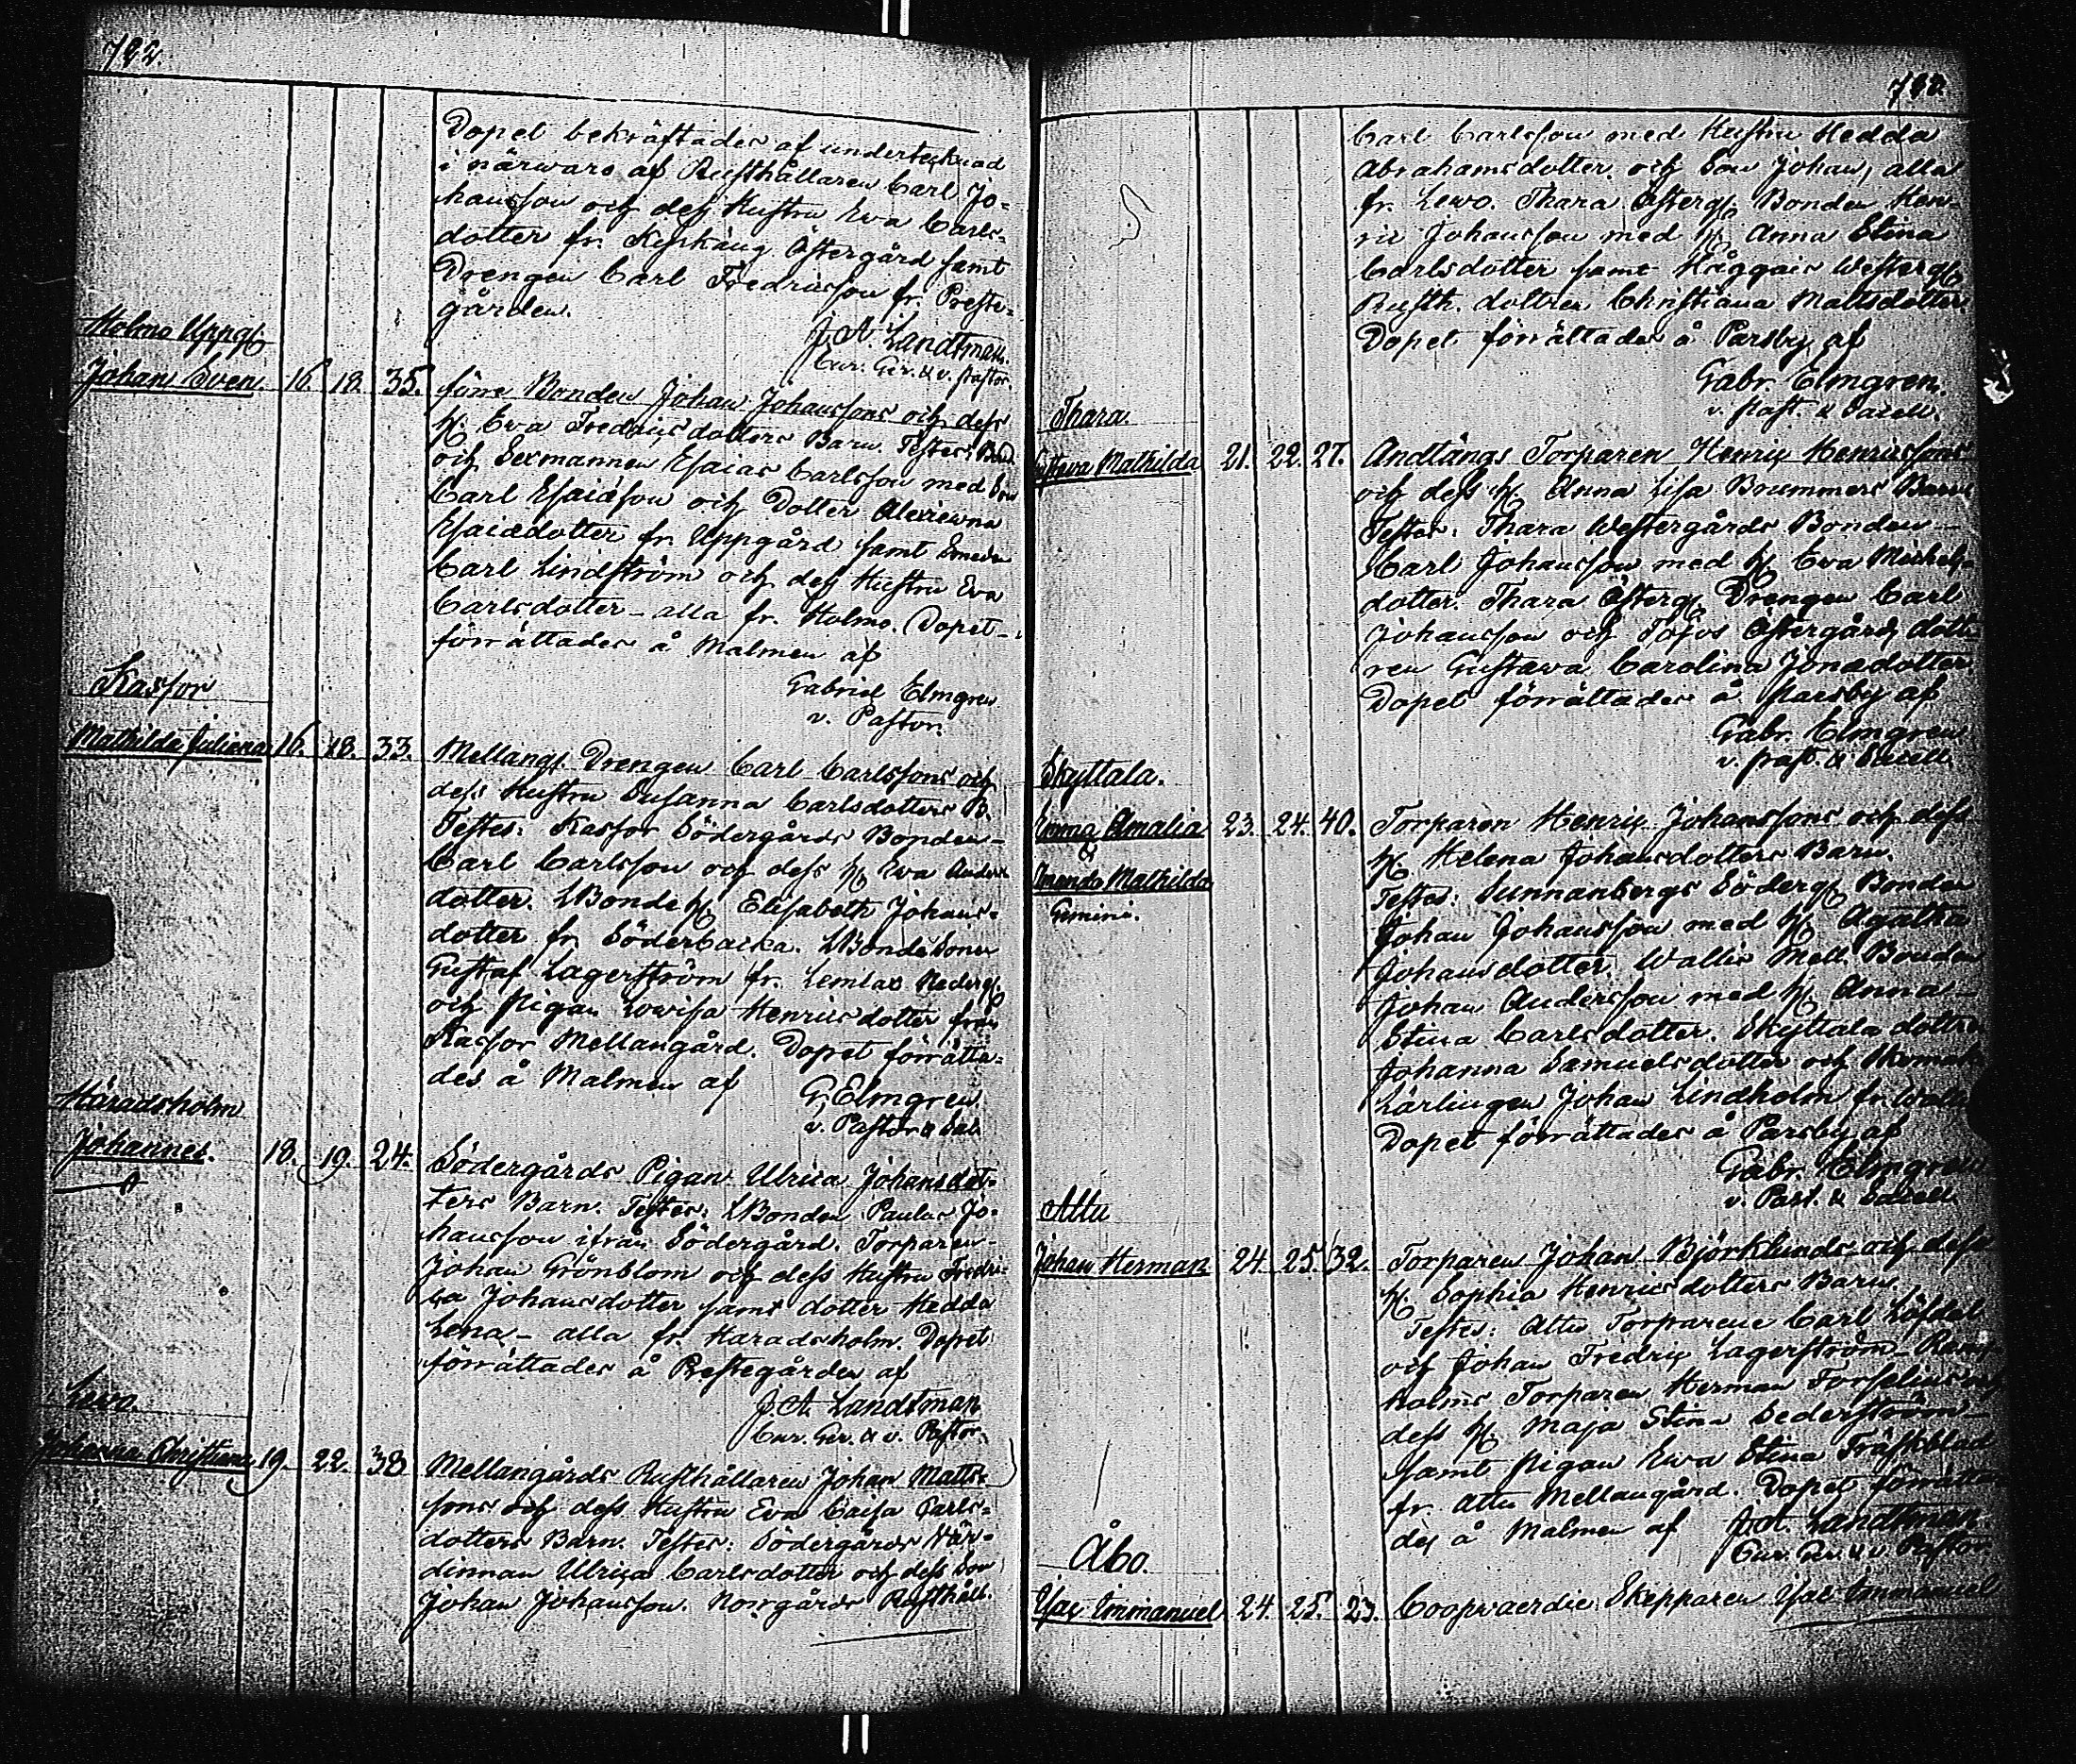 722.
Dopet bekräftades af undertecknad
i närwaro af Rusthållaren Carl Jo=
hansson och dess Hustru Ewa Carls=
dotter fr. Östergård samt
Drengen Carl Fredricsson fr. Preste=
gården.
J. A. Landtman.
Cur. Ger. & v. pastor.
Holmo Uppg.
Johan Sven 16. 18. 35. Bonden Johan Johanssons och dess
H. Ewa Fredricsdotters Barn. Testes: Bond.
och Sexmannen Esaias Carlsson med Son
Carl Esaiasson och Dotter
Esaiædotter fr. Uppgård samt
Carl Lindström och dess Hustru Eva
Carlsdotter - alla fr. Holmo. Dopet
förrättades å Malmen af
Gabriel Elmgren
v. Pastor.
Kasfor
Mathilda Juliana 16. 18. 33. Mellang. Drengen Carl Carlssons och
dess Hustru Susanna Carlsdotters B.
Testes: Kasfor Södergårds Bonden
Carl Carlsson och dess H. Eva Anders
dotter. LBonde H. Elisabeth Johans=
dotter fr. Söderbacka. LBonde Sonen
Gustaf Lagerström fr. Lemlax Nederg.
och pigan Lovisa Henricsdotter från
Kasfor Mellangård. Dopet förrätta=
des å Malmen af
G. Elmgren
v. Pastor & Sac.
Häradsholm
Johannes. 18. 19. 24. Södergårds Pigan Ulrica Johansdot=
ters Barn. Testes: LBonden Paulus Jo=
hansson ifrån Södergård. Torparen
Johan Grönblom och dess Hustru Fredri=
ca Johansdotter samt dotter Hedda
Lena - alla fr. Haradsholm. Dopet
förrättades å Prestegården af
J. A. Landtman
Cur. Ger. & v. Pastor.
Lewo
Johanna Christiana 19. 22. 38 Mellangårds Rusthållaren Johan Matts=
sons och dess Hustru Eva Caisa Carls=
dotters Barn. Testes: Södergårds Vär=
dinnan Ulrica Carlsdotter och dess Son
Johan Johansson. Norrgårds Rusthåll.
723.
Carl Carlsson med Hustru Hedda
Abrahamsdotter och Son Johan, alla
fr. Lewo. Thara Österg. Bonden Hen=
ric Johansson med H. Anna Stina
Carlsdotter samt Häggais Westerg.
Rusth. dottren Christiana Mattsdotter.
Dopet förrättades å Parsby af
Gabr. Elmgren.
v. past. & Sacell.
Thara.
Gustava Mathilda 21. 22. 27. Andtängs Torparen Henric Henricssons
och dess H. Anna Lisa Brummers Barn
Testes: Thara Westergårds Bonden
Carl Johansson med H. Ewa Michels=
dotter. Thara Österg. Drengen Carl
Johansson och Tojvos Östergårds dott=
ren Gustawa Carolina Jonædotter.
Dopet förrättades å Parsby af
Gabr. Elmgren
v. past. & Sacell.
Skyttala.
Emma Amalia 23. 24. 40. Torparen Henric Johanssons och dess
&
H. Helena Johansdotters Barn.
Amanda Mathilda
Testes: Sunnanbergs Söderg. Bonden
Gemini.
Johan Johansson med H. Agatha
Johansdotter. Wallis Mell. Bonden
Johan Andersson med H. Anna
Stina Carlsdotter. Skyttala dottren
Johanna Samuelsdotter och
Lärlingen Johan Lindholm fr.
Dopet förrättades å Parsby af
Gabr. Elmgren
v. Past. & Sacell.
Attu
Johan Herman 24. 25. 32. Torparen Johan Björklunds och dess
H. Sophia Henricsdotters Barn.
Testes: Attu Torparene Carl Löfdal
och Johan Fredric Lagerström
holms Torparen Herman Forselius och
dess H. Maja Stina Sederström
samt pigan Ewa Stina Träskblad
fr. Attu Mellangård. Dopet förrätta
des å Malmen af J. A. Landtman
Cur. Ger. & v. Pastor
Åbo.
Isac Emmanuel 24. 25. 23. Coopvaerdie Skepparen Isac Emmanuel